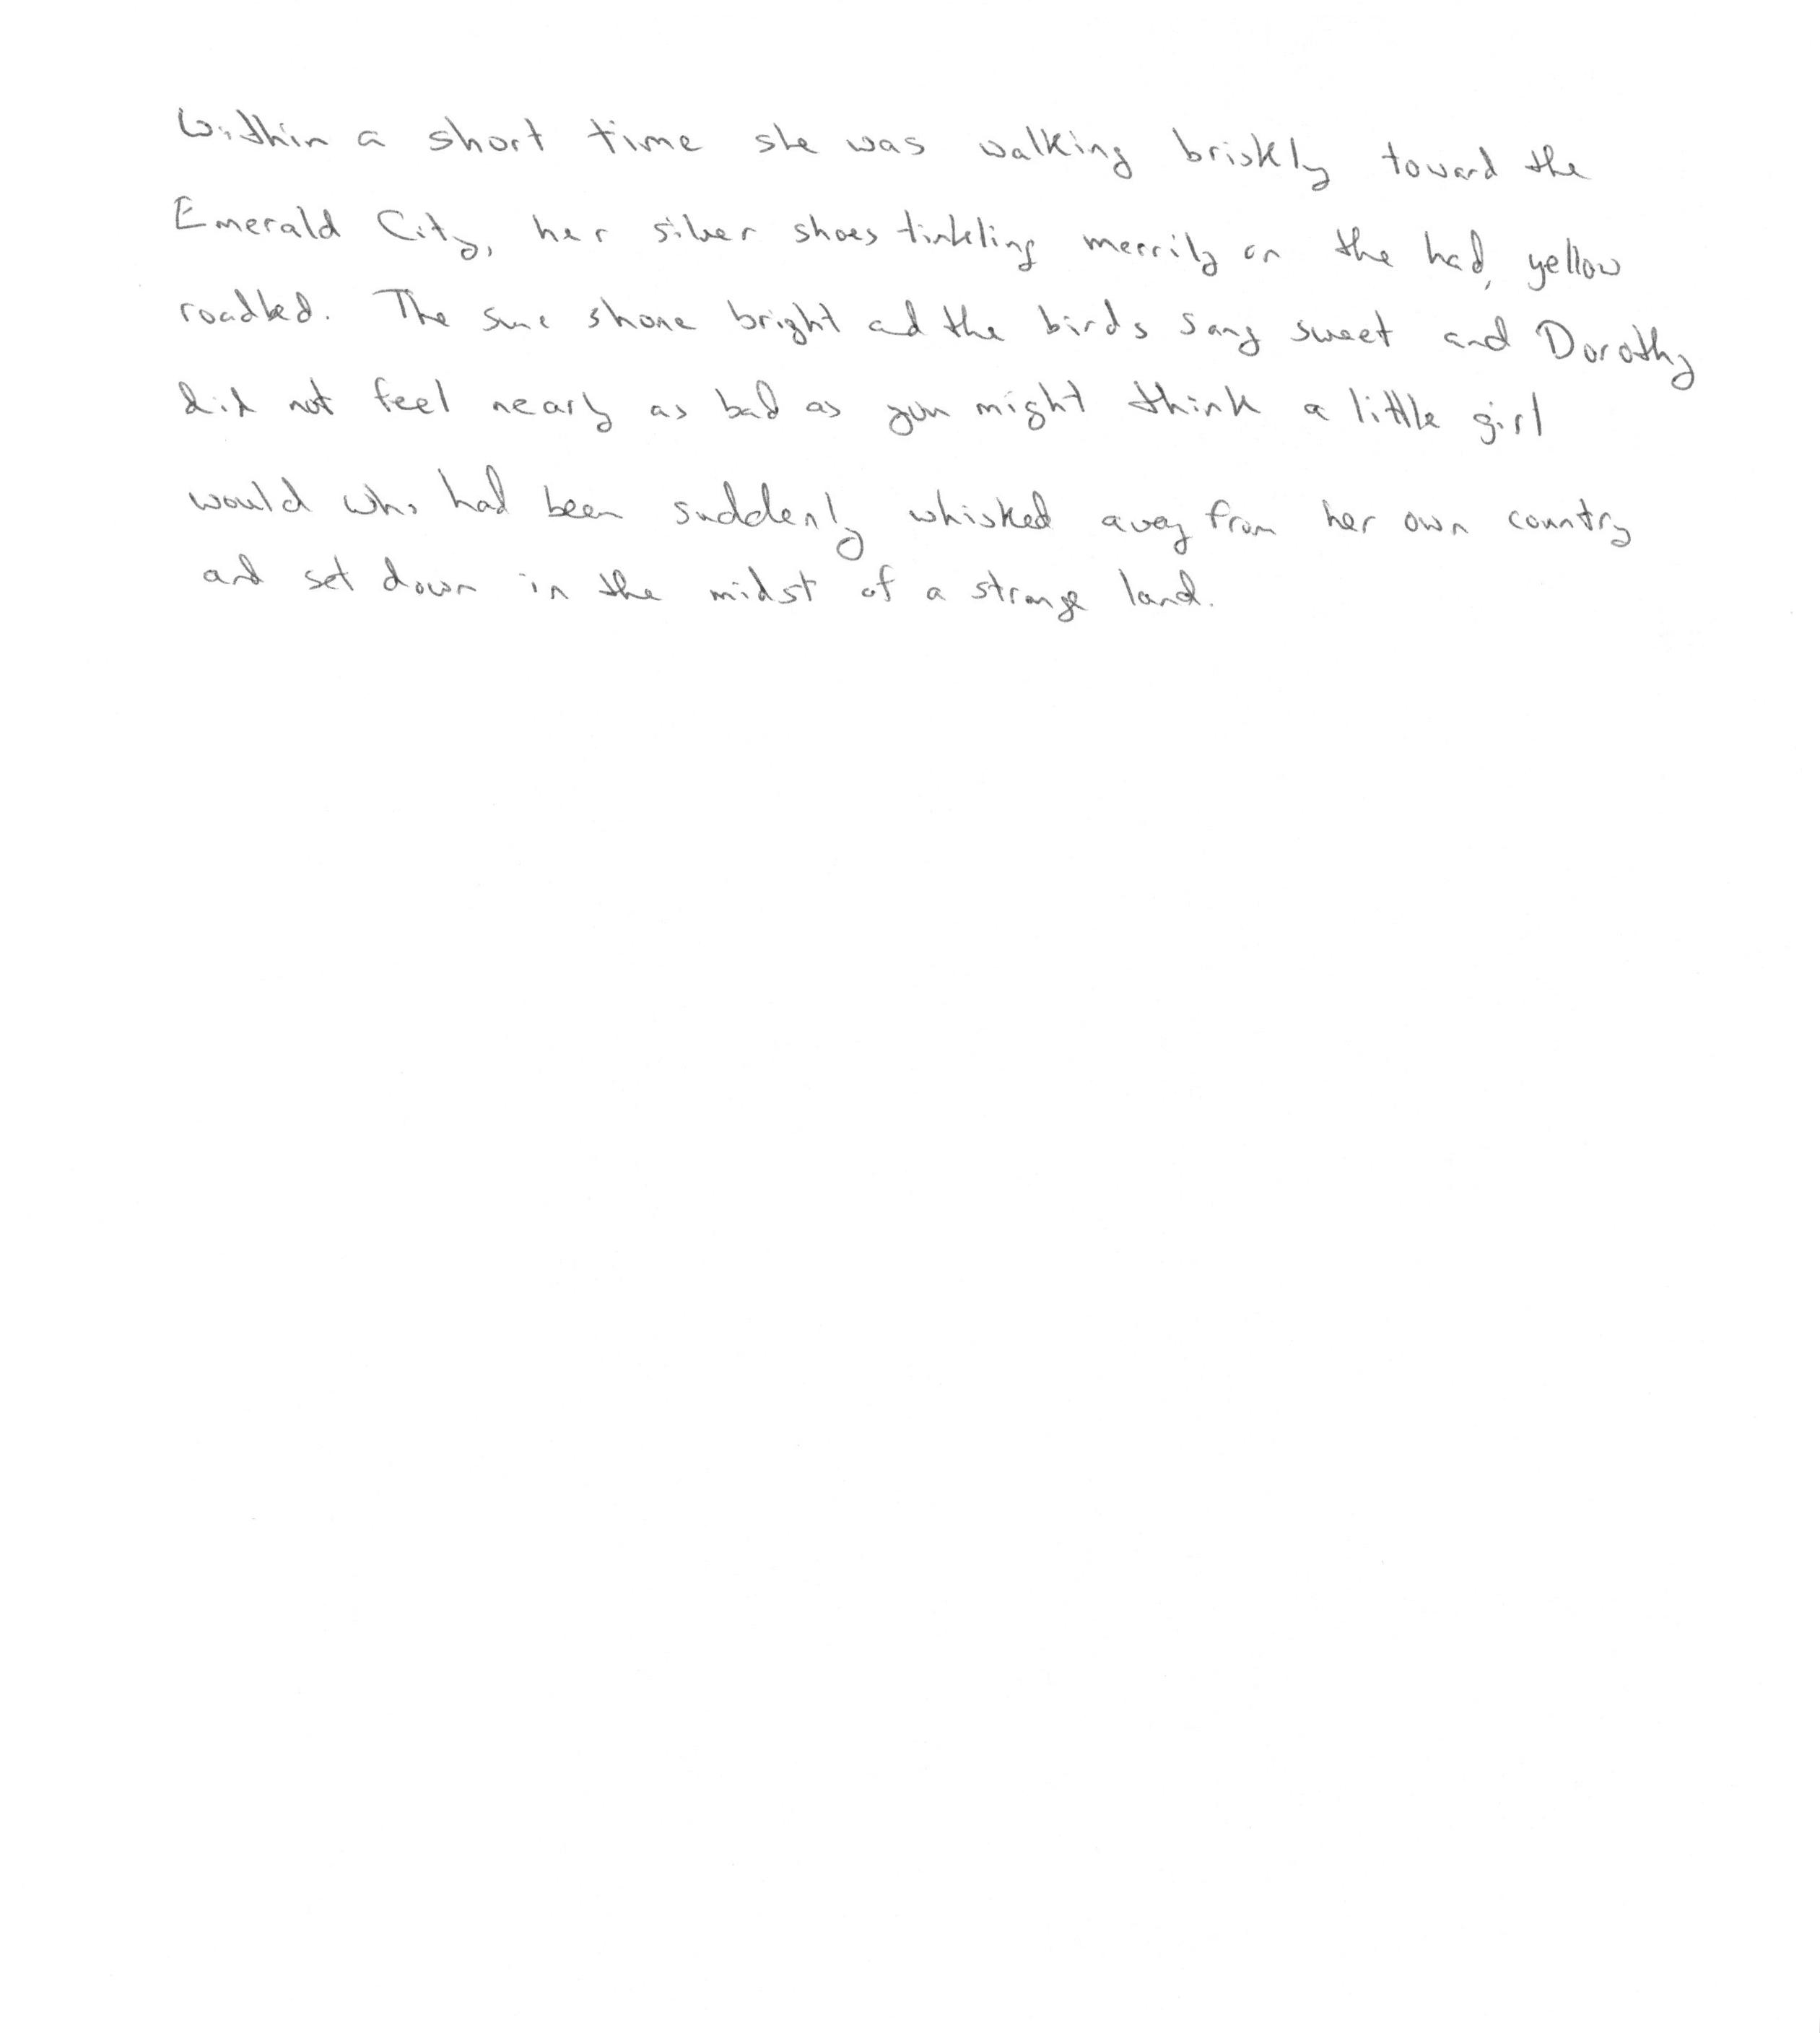 Within a short time she was walking briskly toward the
Emerald City, her silver shoes tinkling merrily on the had, yellow
roadbed. The sune shone bright ad the birds sang sweet and Dorothy
did not feel nearly as bad as you might think a little girl
would who had been suddenly whisked away from her own country
and set down in the midst of a strange land.